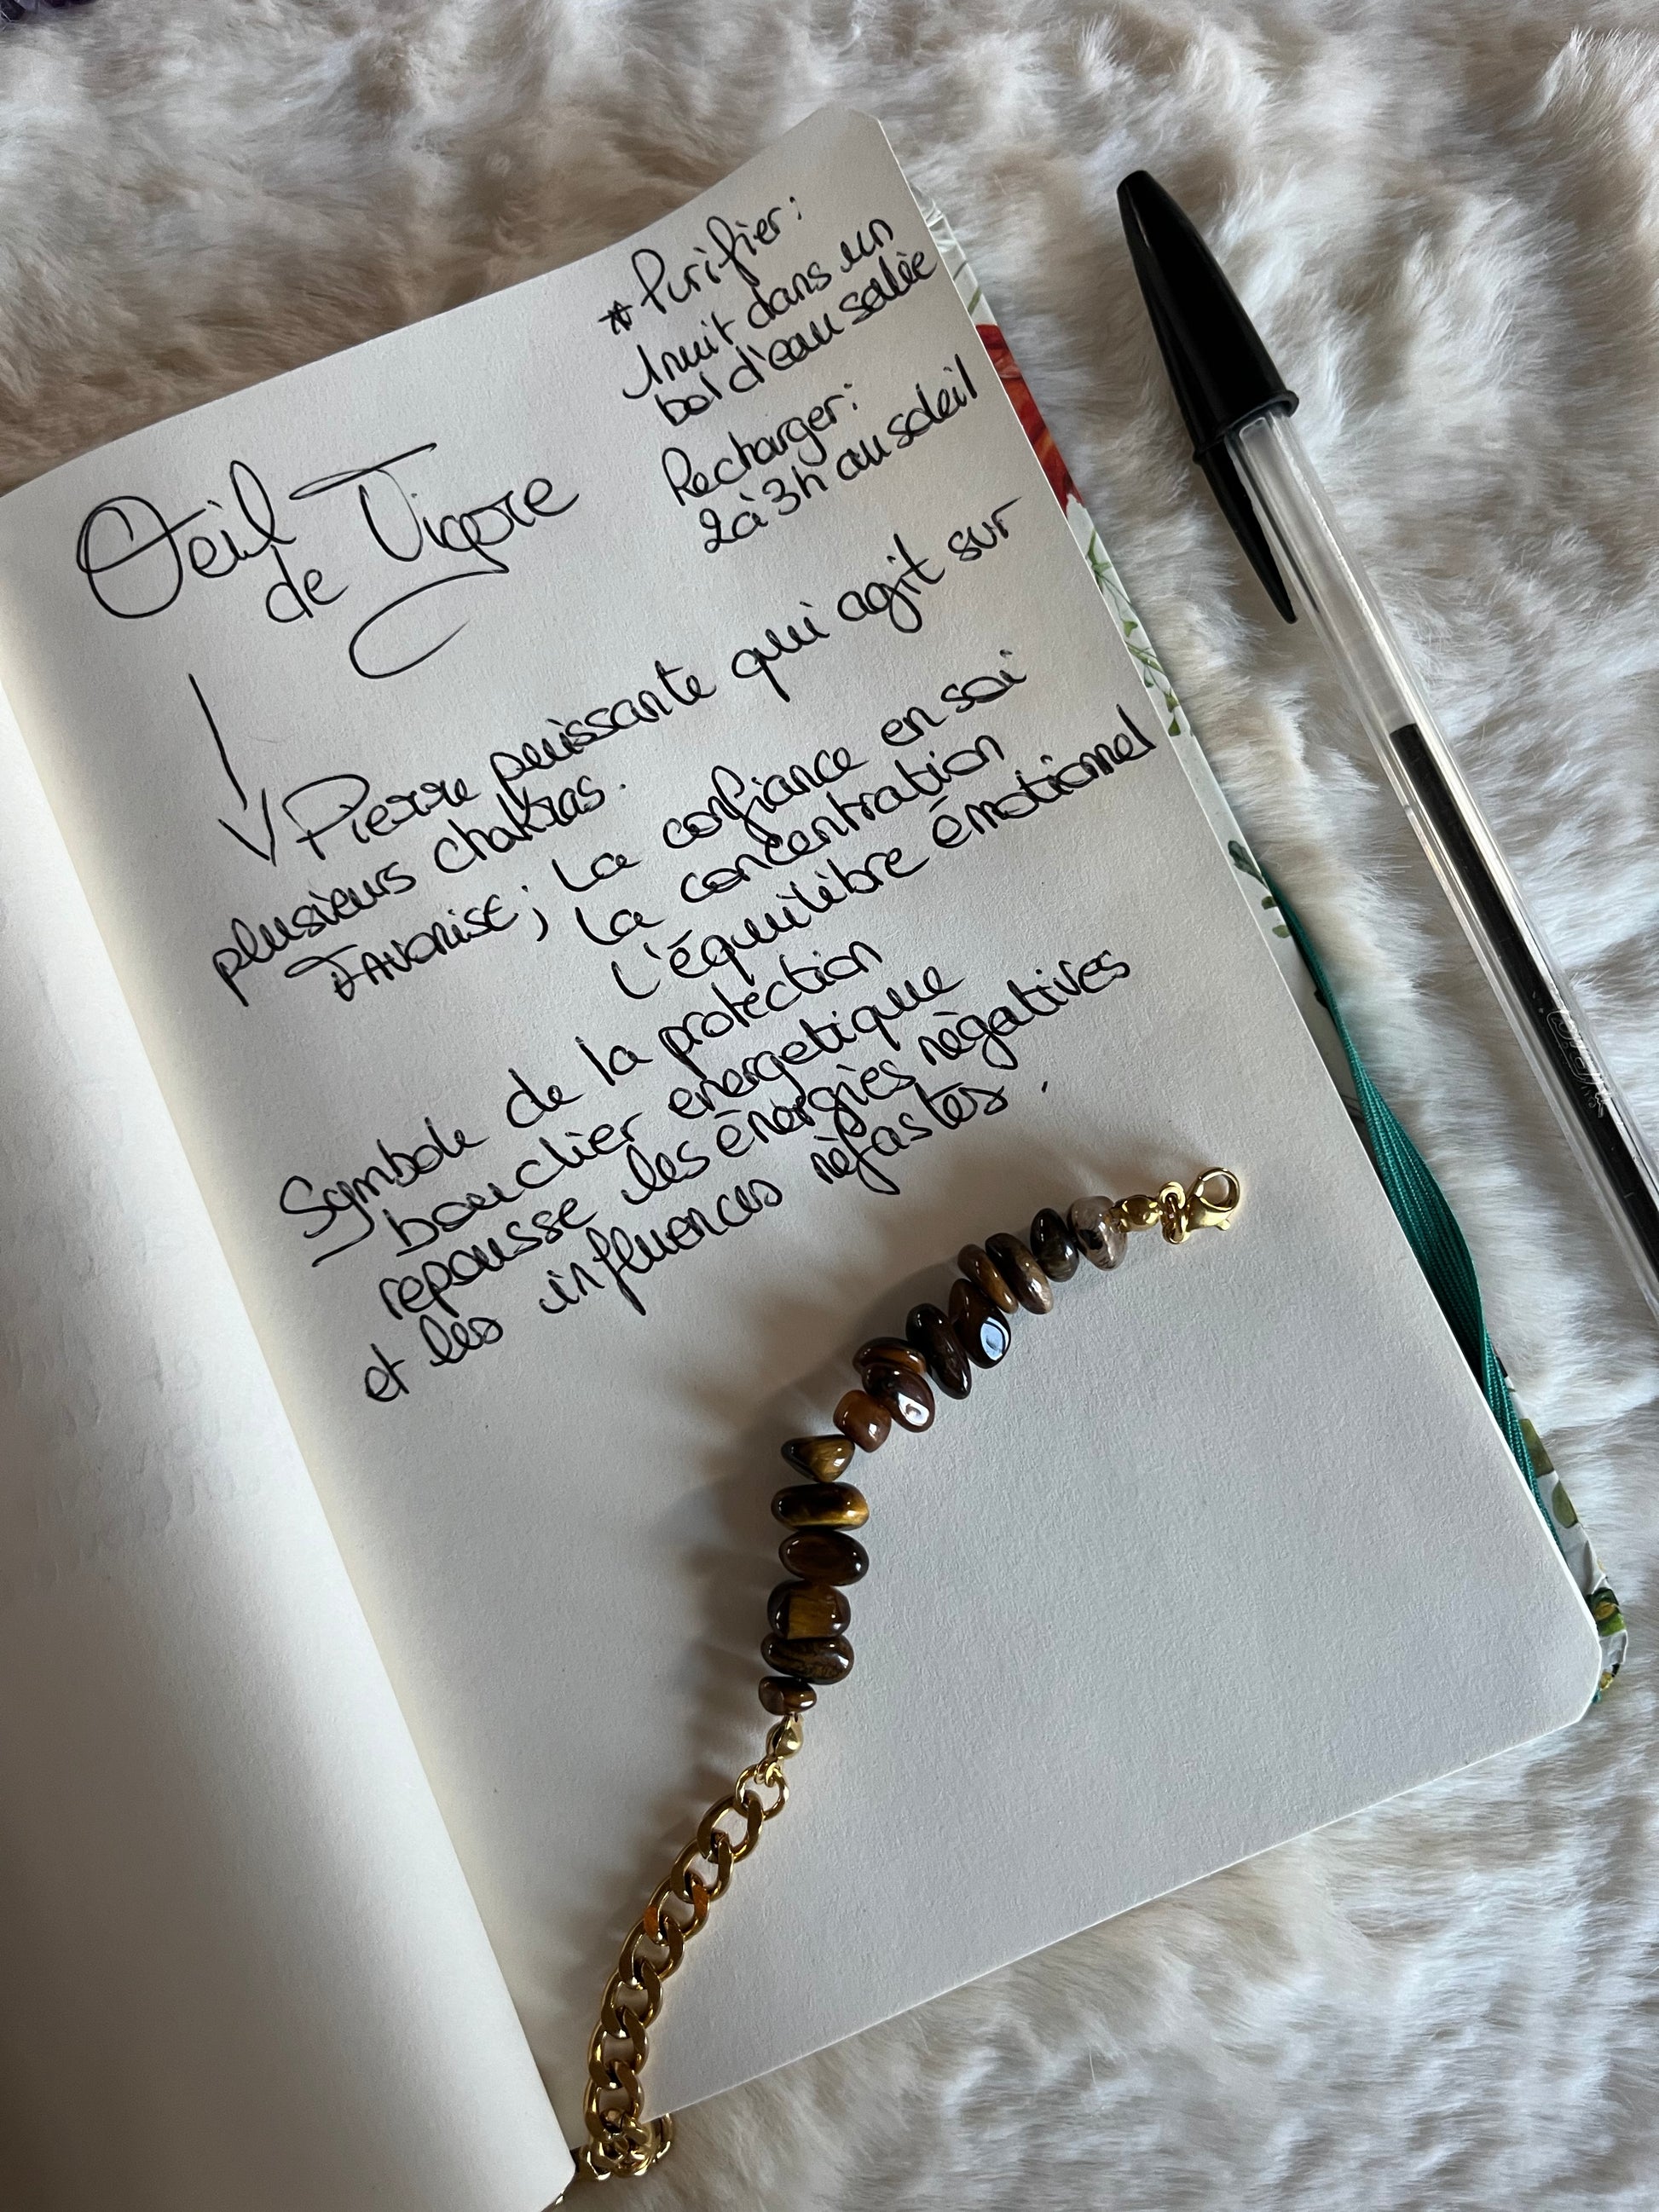 Oeil de Tigre
* Purifier:
1nuit dans un
bol d'eau salée
Recharger:
2à3h au soleil
Pierre puissante qui agit sur
plusieurs chakras.
FAvorise; La confiance en soi
La concentration
L'équilibre émotionnel
Symbole de la protection
bouclier energetique
repousse les énergies négatives
et les influences néfastes.